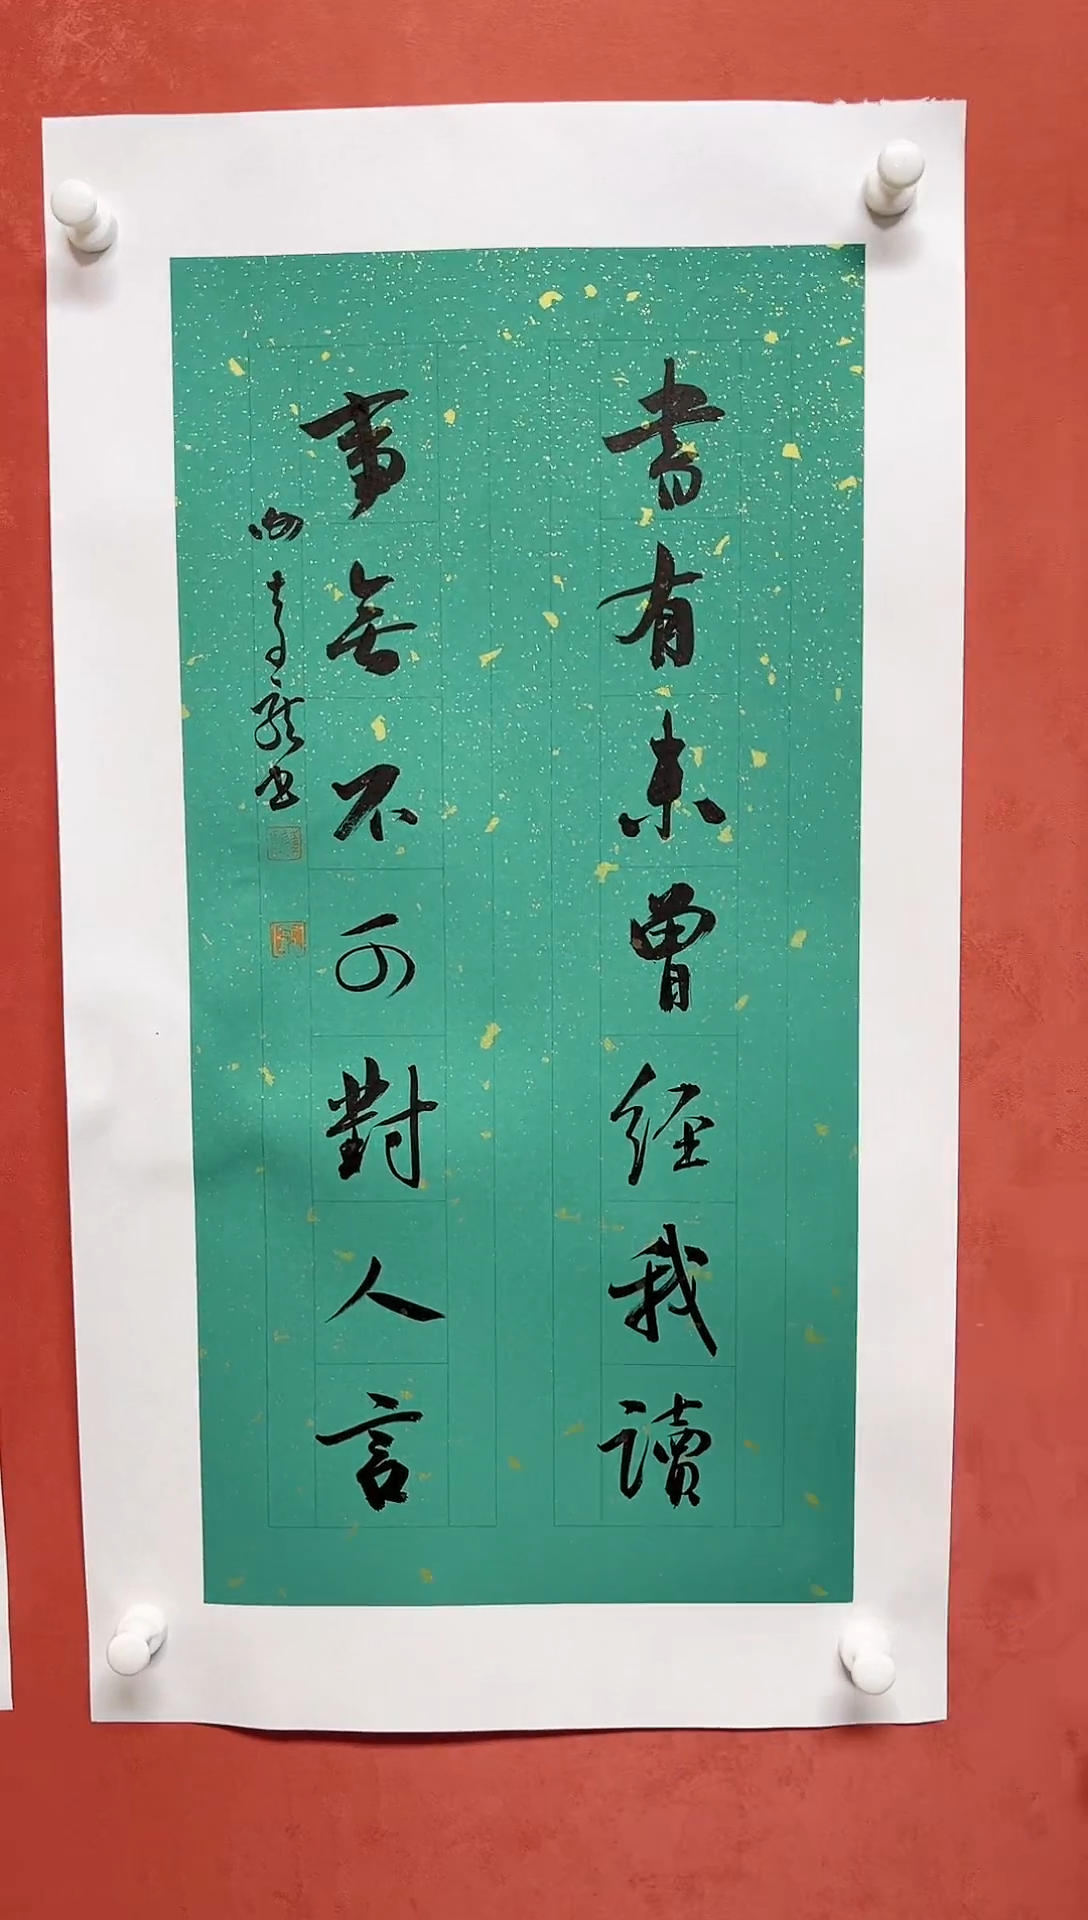 書有未曾經我讀
事無不可對人言